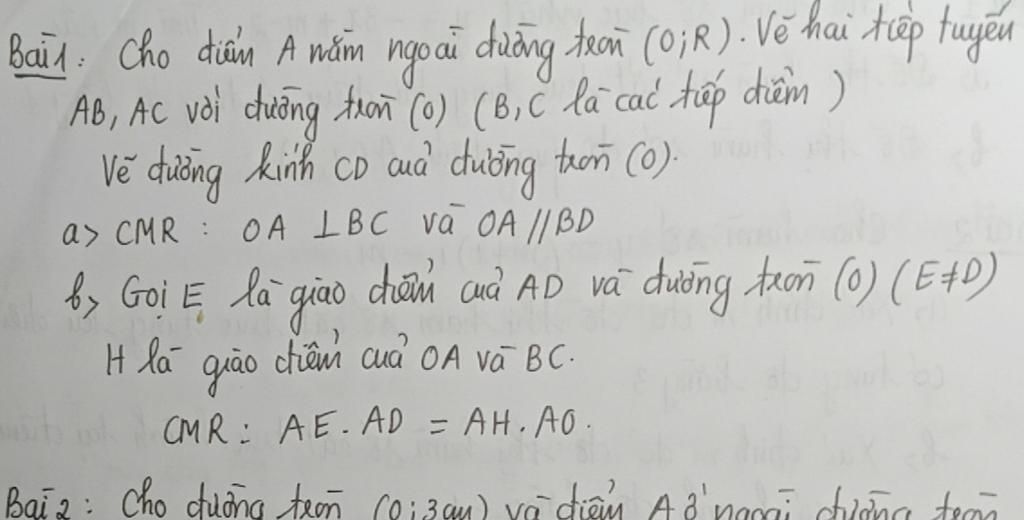 Bài 1: Cho điểm A nằm ngoài đường tròn (O;R). Vẽ hai tiếp tuyến
AB, AC với đường tròn (O) (B, C là các tiếp điểm)
Vẽ đường kính CD của đường tròn (O).
a> CMR: OA ⊥ BC và OA // BD
b> Gọi E là giao điểm của AD và đường tròn (O) (E ≠ D)
H là giao điểm của OA và BC.
CMR: AE. AD = AH. AO.
Bài 2: Cho đường tròn (O; 3cm) và điểm A ở ngoài đường tròn